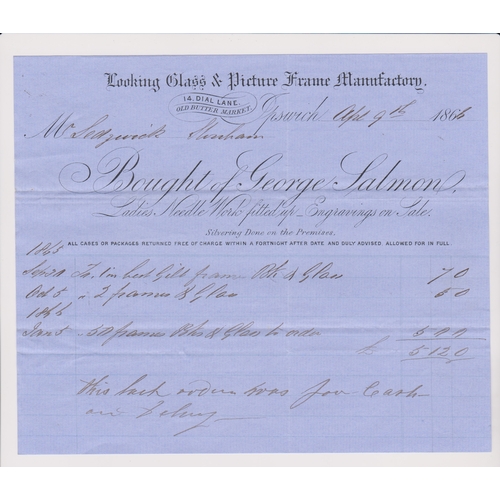 Looking Glass & Picture Frame Manufactory.
14, DIAL LANE,
OLD BUTTER MARKET,
Ipswich Apl 9th 1866
Mr Sedgwick
Bought of George Salmon,
Ladies Needle Work fitted up _ Engravings on Sale.
Silvering Done on the Premises.
ALL CASES OR PACKAGES RETURNED FREE OF CHARGE WITHIN A FORTNIGHT AFTER DATE AND DULY ADVISED ALLOWED FOR IN FULL.
1865
To 1 in best Gilt frame & Glass 7 0
Oct 5 " 2 frames & Glass 5 0
1866
Jany 5 " 50 frames & Glass to order 5 0 0
£ 5 12 0
this last order was for Cash